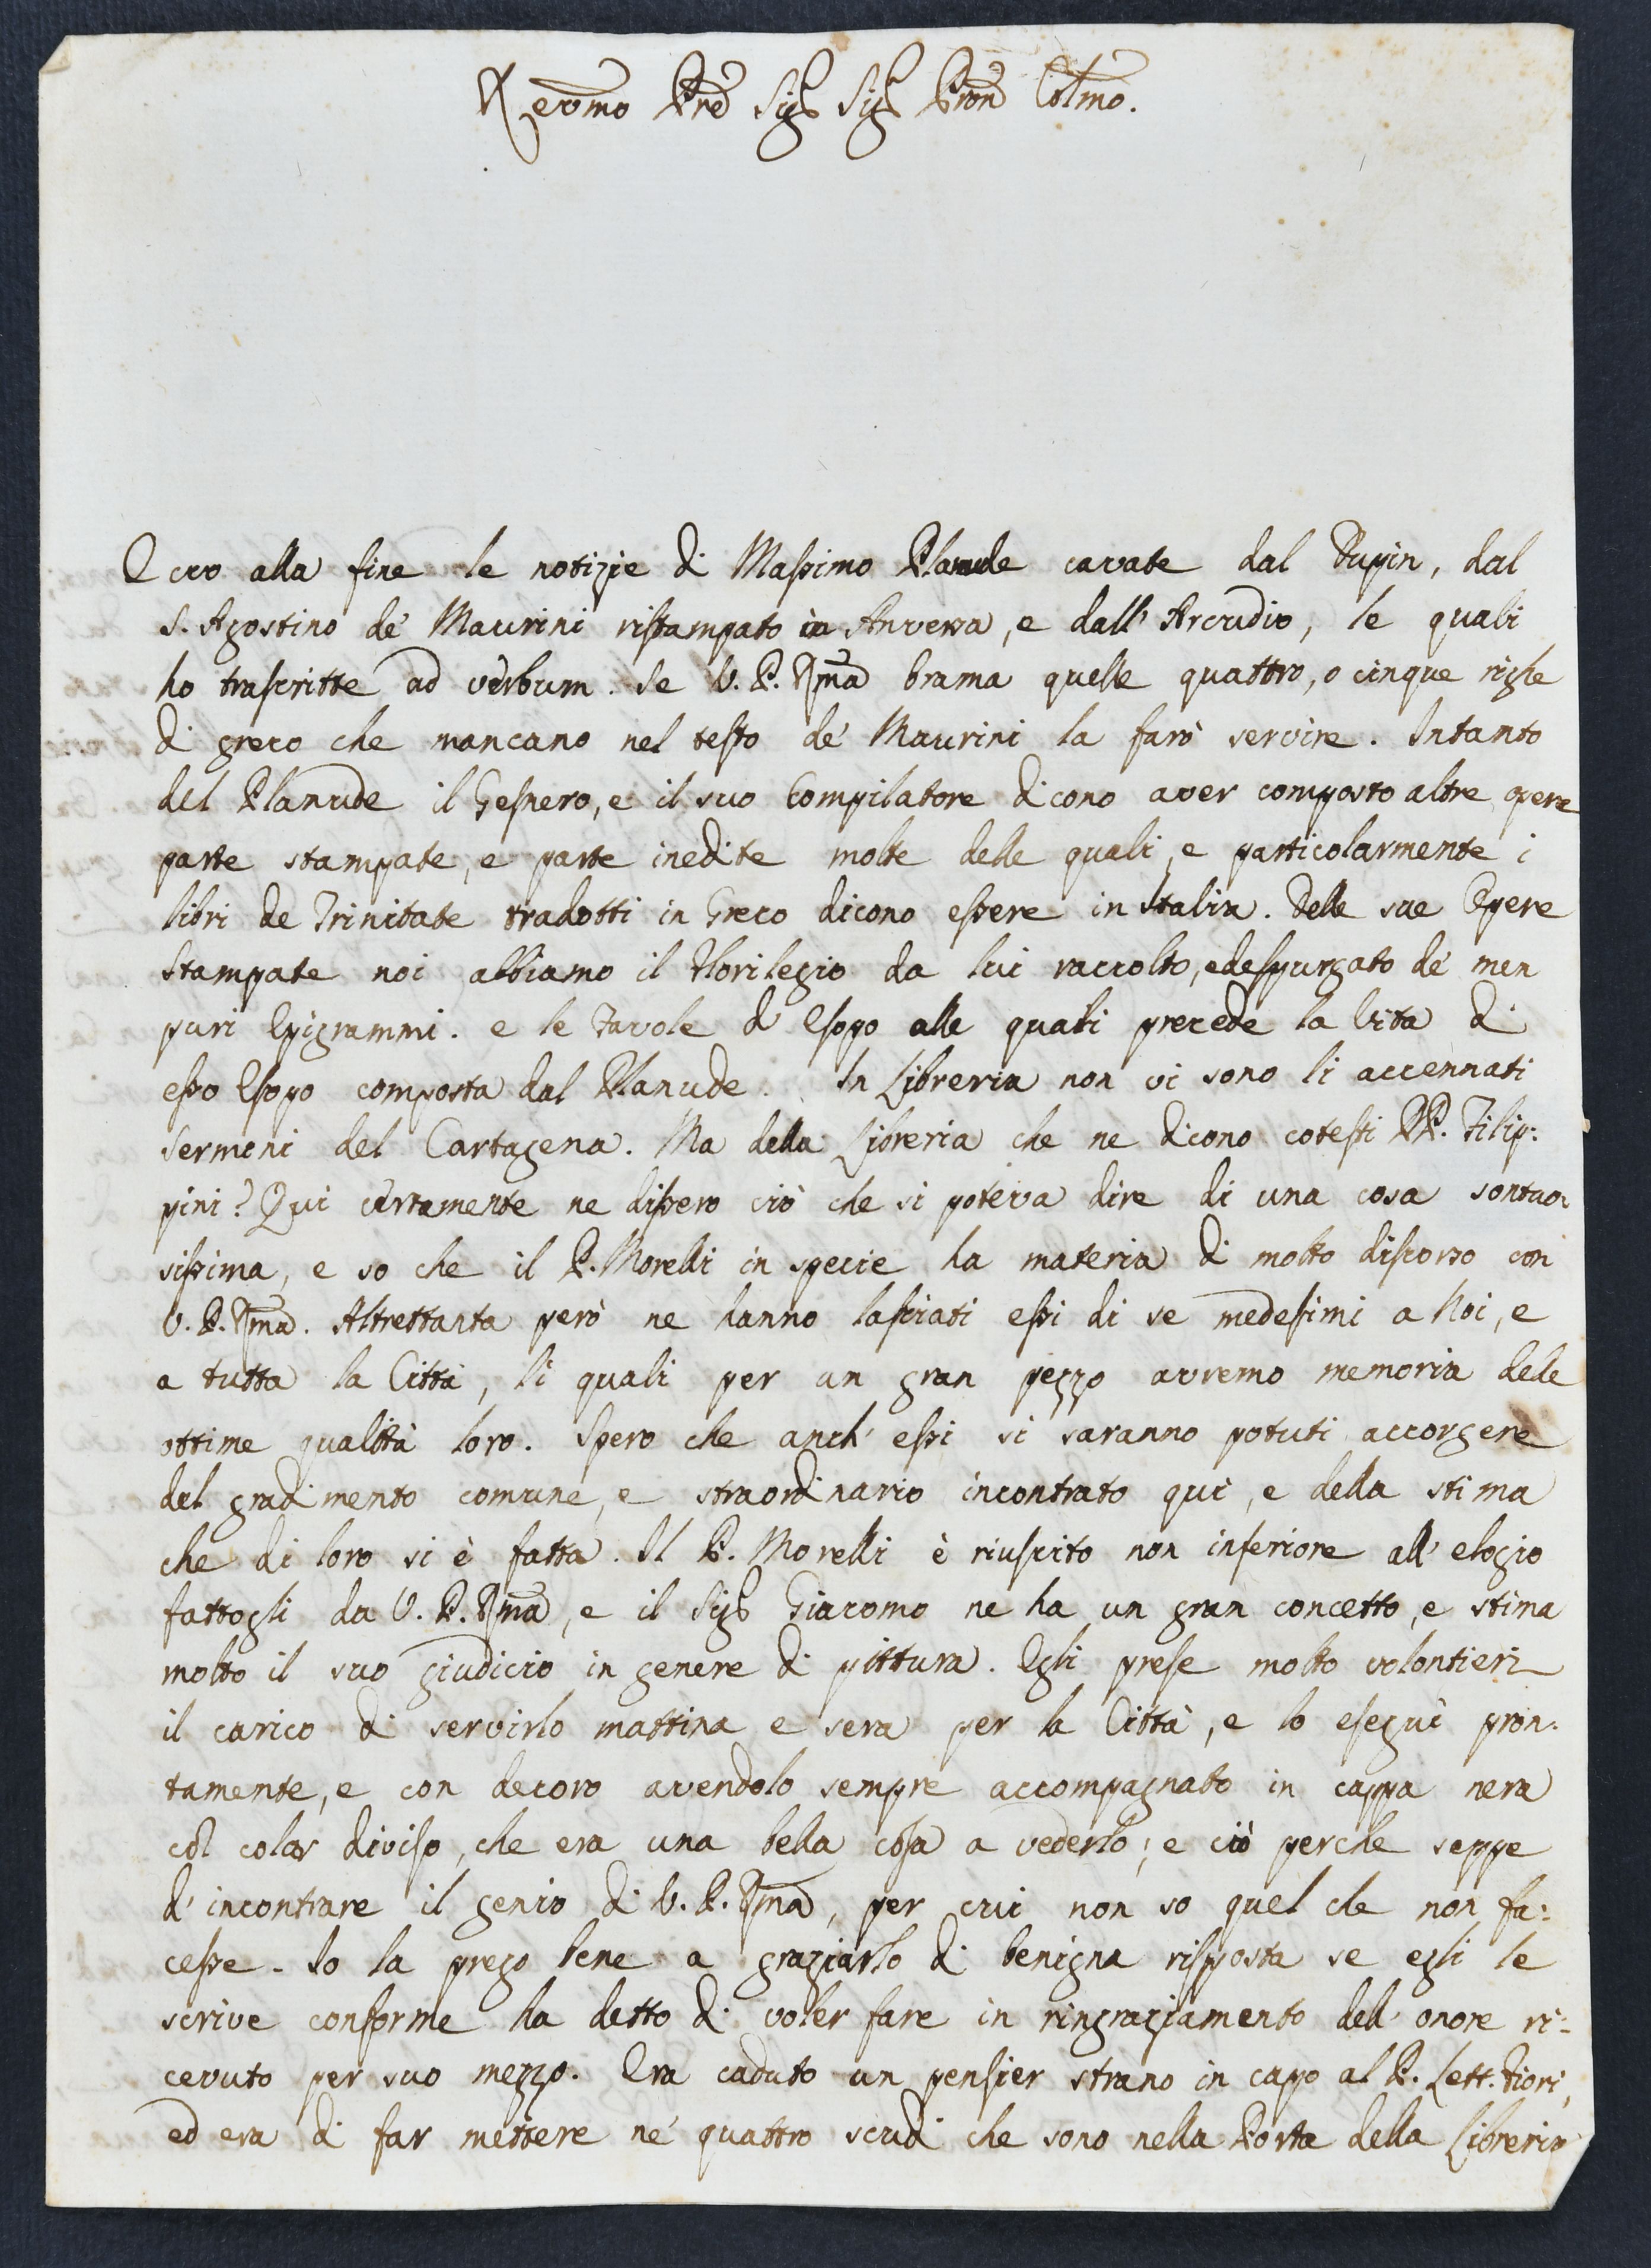 Revermo Pre Sigr Sigr Pron Colmo.
Ecco alla fine le notizie di Massimo Planude cavate dal Dupin, dal
S. Agostino de' Maurini ristampato in Anversa, e dall' Arcudio, le quali
ho trascritte ad verbum. Se V. P. Rma brama quelle quattro, o cinque righe
di greco che mancano nel testo de' Maurini la farò servire. Intanto
del Planude il Gesnero, e il suo Compilatore dicono aver composto altre opere
parte stampate, e parte inedite molte delle quali, e particolarmente i
libri de Trinitate tradotti in Greco dicono essere in Italia. Delle sue Opere
Stampate noi abbiamo il Florilegio da lui raccolto, ed espurgato de' men
puri Epigrammi. e le Favole d' Esopo alle quali precede la Vita di
esso Esopo composta dal Planude. In Libreria non vi sono li accennati
Sermoni del Cartagena. Ma della Libreria che ne dicono cotesti PP. Filip:
pini? Qui certamente ne dissero ciò che si poteva dire di una cosa sontuo:
sissima, e so che il P. Morelli in specie ha materia di molto discorso con
V. P. Rma. Altrettanta però ne hanno lasciati essi di se medesimi a Noi, e
a tutta la Città, li quali per un gran pezzo avremo memoria dele
ottime qualità loro. Spero che anch' essi si saranno potuti accorgere
del gradimento comune, e straordinario incontrato qui, e della stima
che di loro si è fatta. Il P. Morelli è riuscito non inferiore all' elogio
fattogli da V. P. Rma, e il Sigr Giacomo ne ha un gran concetto, e stima
molto il suo giudicio in genere di pittura. Egli prese molto volontieri
il carico di servirlo mattina e sera per la Città, e lo eseguì pron:
tamente, e con decoro avendolo sempre accompagnato in cappa nera
col colar diviso, che era una bella cosa a vederlo; e ciò perche seppe
d' incontrare il genio di V. P. Rma, per cui non so quel che non fa:
cesse. Io la prego bene a graziarlo di benigna risposta se egli le
scrive conforme ha detto di voler fare in ringraziamento dell' onore ri:
cevuto per suo mezzo. Era caduto un pensier strano in capo al P. Lett. Fiori,
ed era di far mettere ne' quattro scudi che sono nella Porta della Libreria